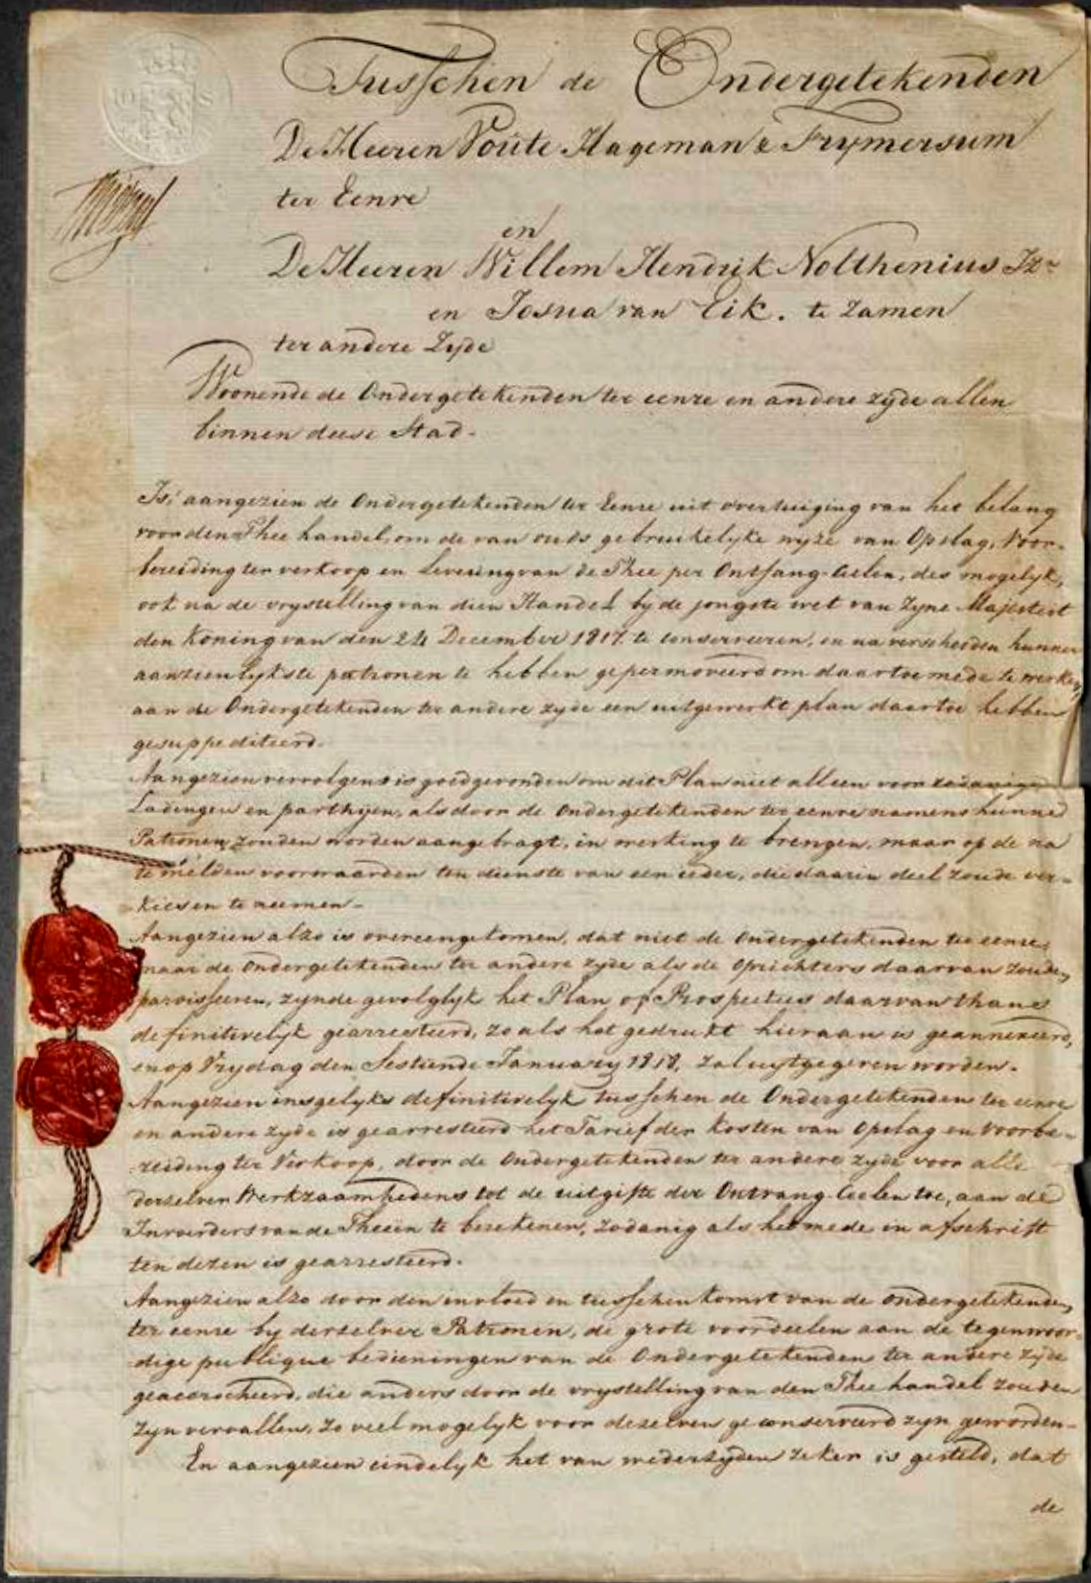 Tusschen de Ondergetekenden
De Heeren Voûte Hageman & Frymersum
ter Eenre
en
De Heeren Willem Hendrik Nolthenius Jz.
en Josua van Eik. te zamen
ter andere Zyde
Woonende de Ondergetekenden ter eenre en andere zyde allen
binnen deese Stad.
Is, aangezien de Ondergetekenden ter Eenre uit overtuiging van het belang
voor den Thee handel, om de van ouds gebruikelyke wyze van Opslag, Voor-
bereiding ter verkoop en Levering van de Thee per Ontfang-Ceelen, des mogelyk,
ook na de vrystelling van dien Handel by de jongste wet van Zyne Majesteit
den Koning van den 24 December 1817 te conserveeren, en na verscheiden hunner
aanzienlykste patronen te hebben gepermoveerd om daartoe mede te werken,
aan de Ondergetekenden ter andere zyde een uitgewerkt plan daartoe hebben
gesuppediteerd.
Aangezien vervolgens is goedgevonden om dit Plan niet alleen voor zodanige
Ladingen en parthyen, als door de Ondergetekenden ter eenre namens hunne
Patronen zouden worden aangebragt, in werking te brengen, maar op de na
te melden voorwaarden ten dienste van een ieder, die daarin deel zoude ver-
kiesen te neemen.
Aangezien alzo is overeengekomen, dat niet de Ondergetekenden ter eenre,
maar de Ondergetekenden ter andere zyde als de Oprichters daarvan zouden
paroisseren, zynde gevolglyk het Plan of Prospectus daarvan thans
definitivelyk gearresteerd, zo als het gedrukt hieraan is geannexeerd,
en op Vrydag den Sestiende January 1818, zal uytgegeven worden.
Aangezien insgelyks definitivelyk tusschen de Ondergetekenden ter eenre
en andere zyde is gearresteerd het Tarief der Kosten van Opslag en Voorbe-
reiding ter Verkoop, door de Ondergetekenden ter andere zyde voor alle
derzelver Werkzaamhedens tot de uitgifte der Ontvang-Ceelen toe, aan de
Invoerders van de Theeen te berekenen, zodanig als het mede in afschrift
ten dezen is gearresteerd.
Aangezien alzo door den invloed en tusschenkomst van de Ondergetekenden
ter eenre by derzelver Patronen, de grote voordeelen aan de tegenwoor-
dige publique bedieningen van de Ondergetekenden ter andere zyde
geaccrocheerd, die anders door de vrystelling van den Thee handel zouden
zyn vervallen, zo veel mogelyk voor dezelven geconserveerd zyn geworden.
En aangezien eindelyk het van wederzyden zeker is gesteld, dat
de